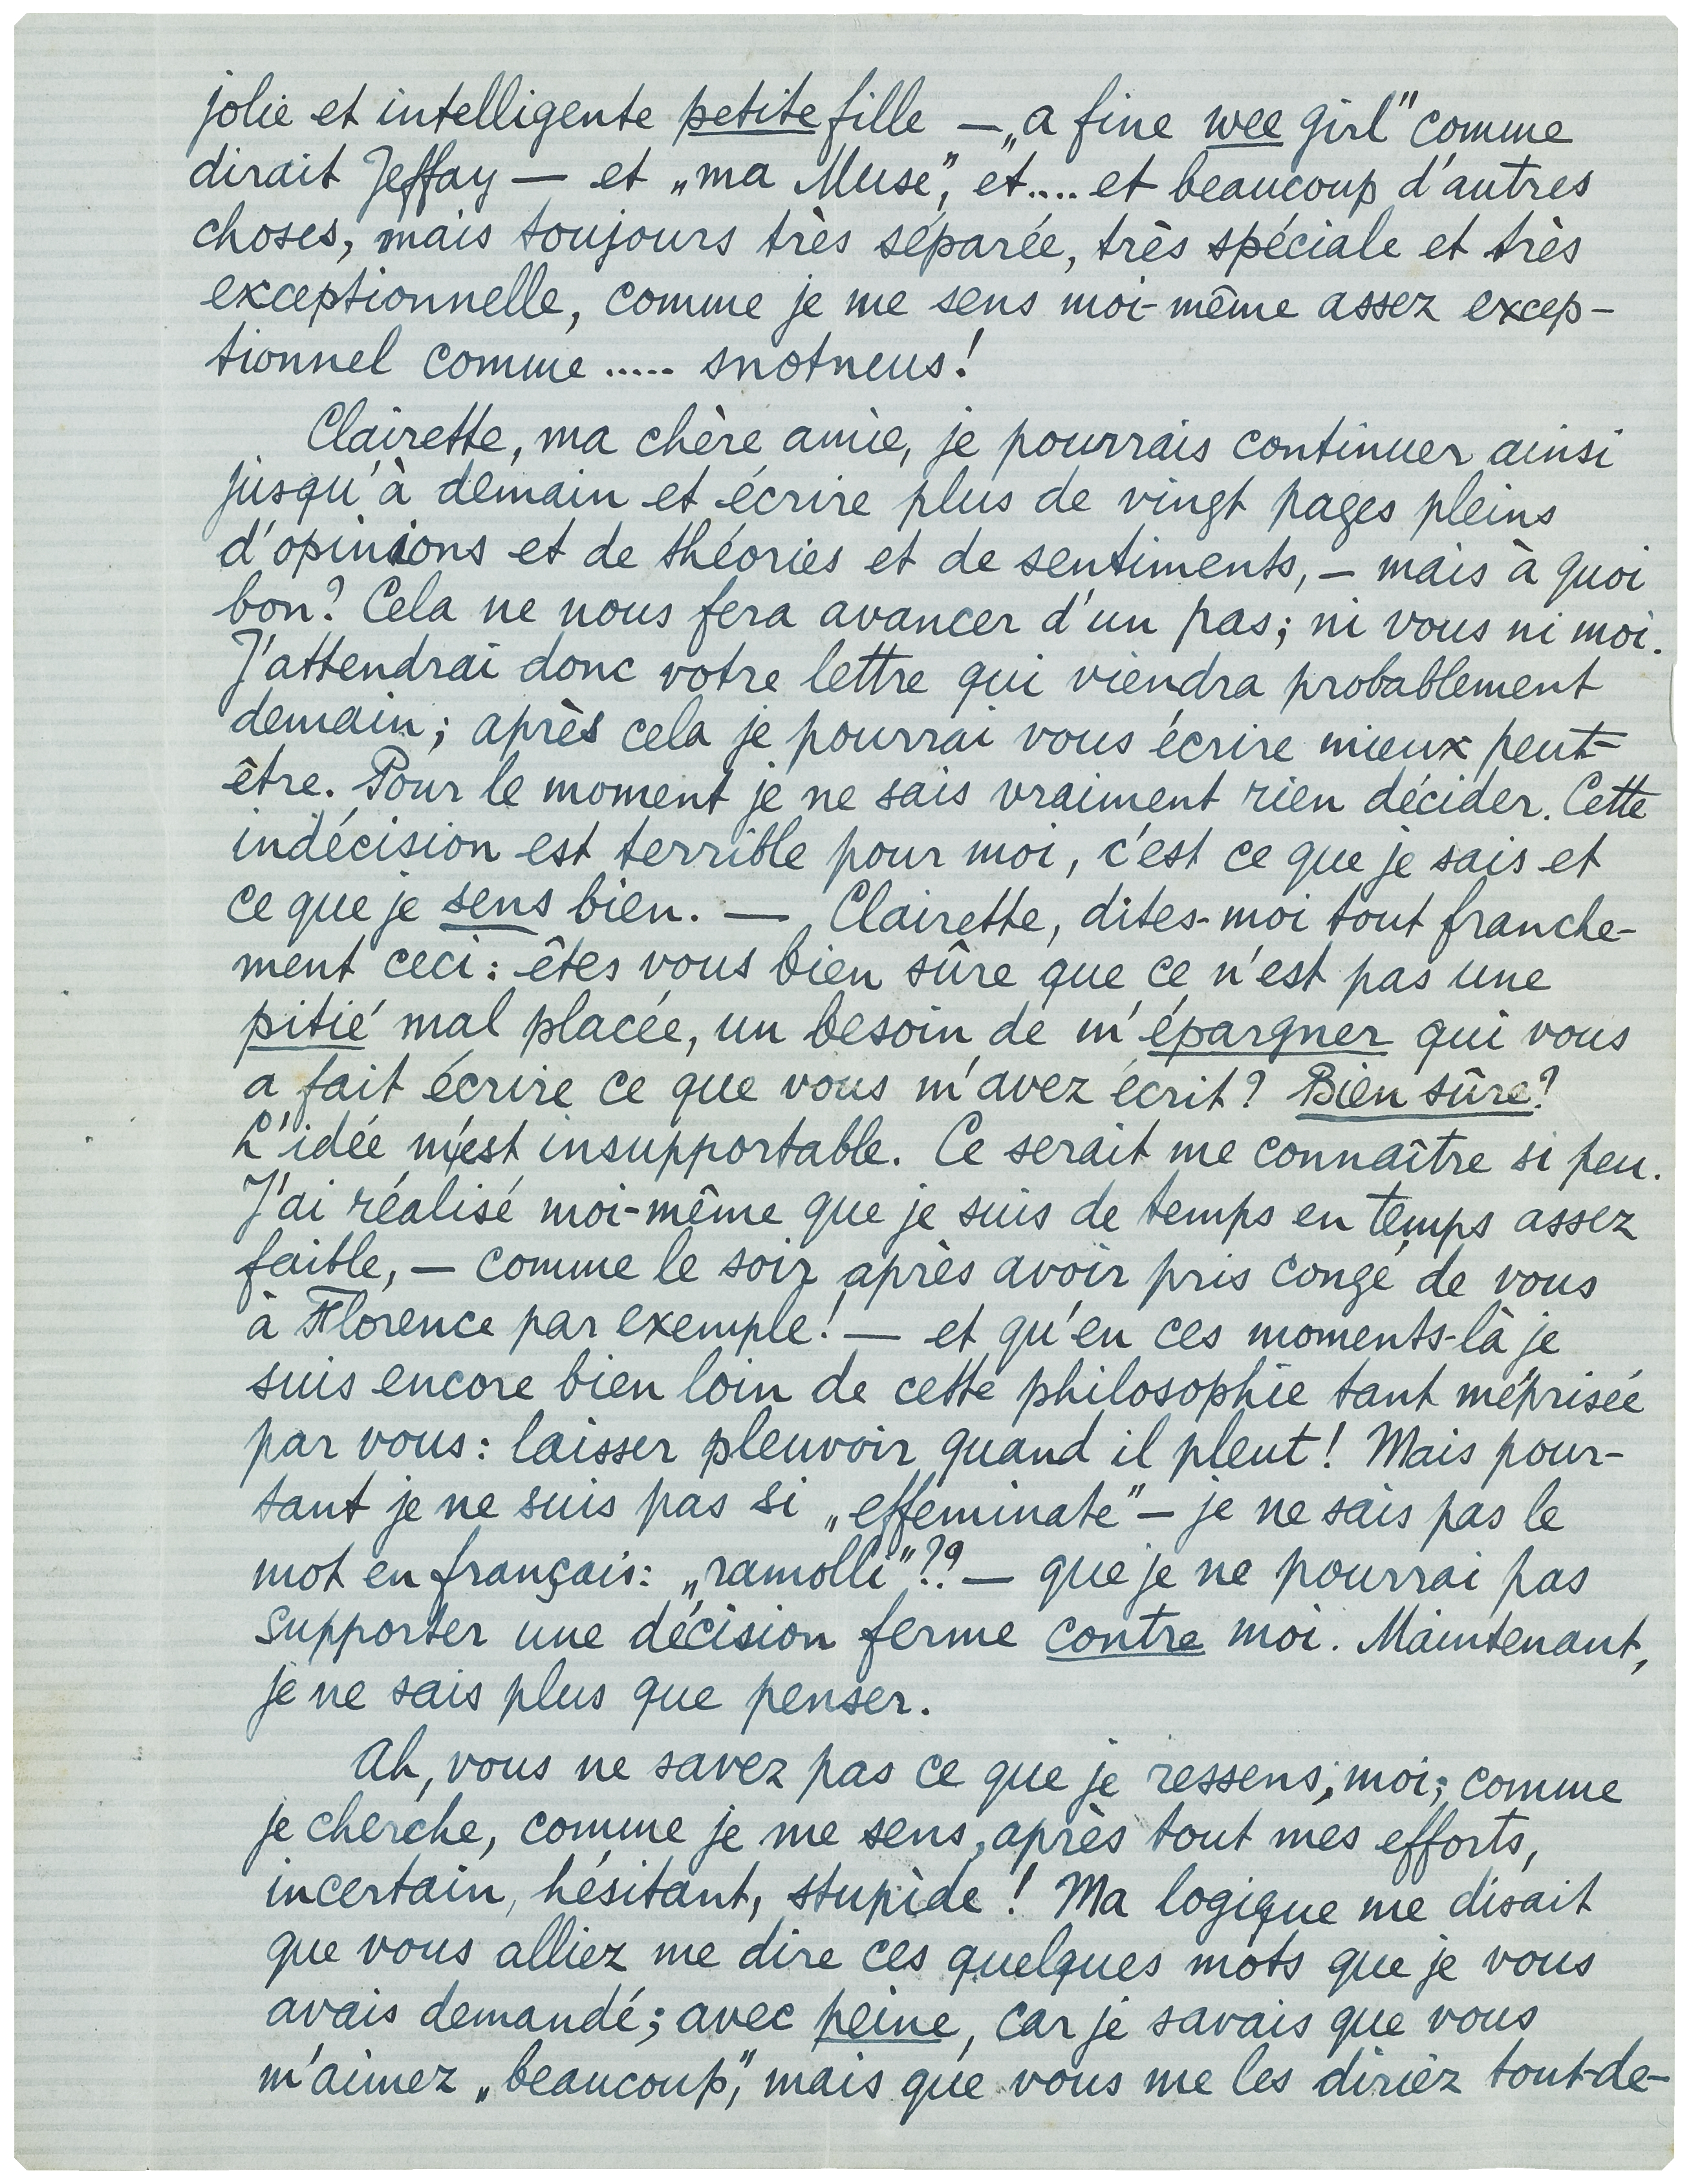 jolie et intelligente petite fille — „a fine wee girl" comme
dirait Jeffay — et „ma Muse", et.... et beaucoup d'autres
choses, mais toujours très séparée, très spéciale et très
exceptionnelle, comme je me sens moi-même assez excep-
tionnel comme ..... snotneus!
Clairette, ma chère amie, je pourrais continuer ainsi
jusqu'à demain et écrire plus de vingt pages pleins
d'opinions et de théories et de sentiments, — mais à quoi
bon? Cela ne nous fera avancer d'un pas; ni vous ni moi.
J'attendrai donc votre lettre qui viendra probablement
demain; après cela je pourrai vous écrire mieux peut-
être. Pour le moment je ne sais vraiment rien décider. Cette
indécision est terrible pour moi, c'est ce que je sais et
ce que je sens bien. — Clairette, dites-moi tout franche-
ment ceci: êtes vous bien sûre que ce n'est pas une
pitié mal placée, un besoin de m'épargner qui vous
a fait écrire ce que vous m'avez écrit? Bien sûre?
L'idée m'est insupportable. Ce serait me connaître si peu.
J'ai réalisé moi-même que je suis de temps en temps assez
faible, — comme le soir après avoir pris congé de vous
à Florence par exemple! — et qu'en ces moments-là je
suis encore bien loin de cette philosophie tant méprisée
par vous: laisser pleuvoir quand il pleut! Mais pour-
tant je ne suis pas si „effeminate" — je ne sais pas le
mot en français: „ramolli"?? — que je ne pourrai pas
supporter une décision ferme contre moi. Maintenant,
je ne sais plus que penser.
Ah, vous ne savez pas ce que je ressens, moi; comme
je cherche, comme je me sens, après tout mes efforts,
incertain, hésitant, stupide! Ma logique me disait
que vous alliez me dire ces quelques mots que je vous
avais demandé; avec peine, car je savais que vous
m'aimez „beaucoup", mais que vous me les diriez tout-de-